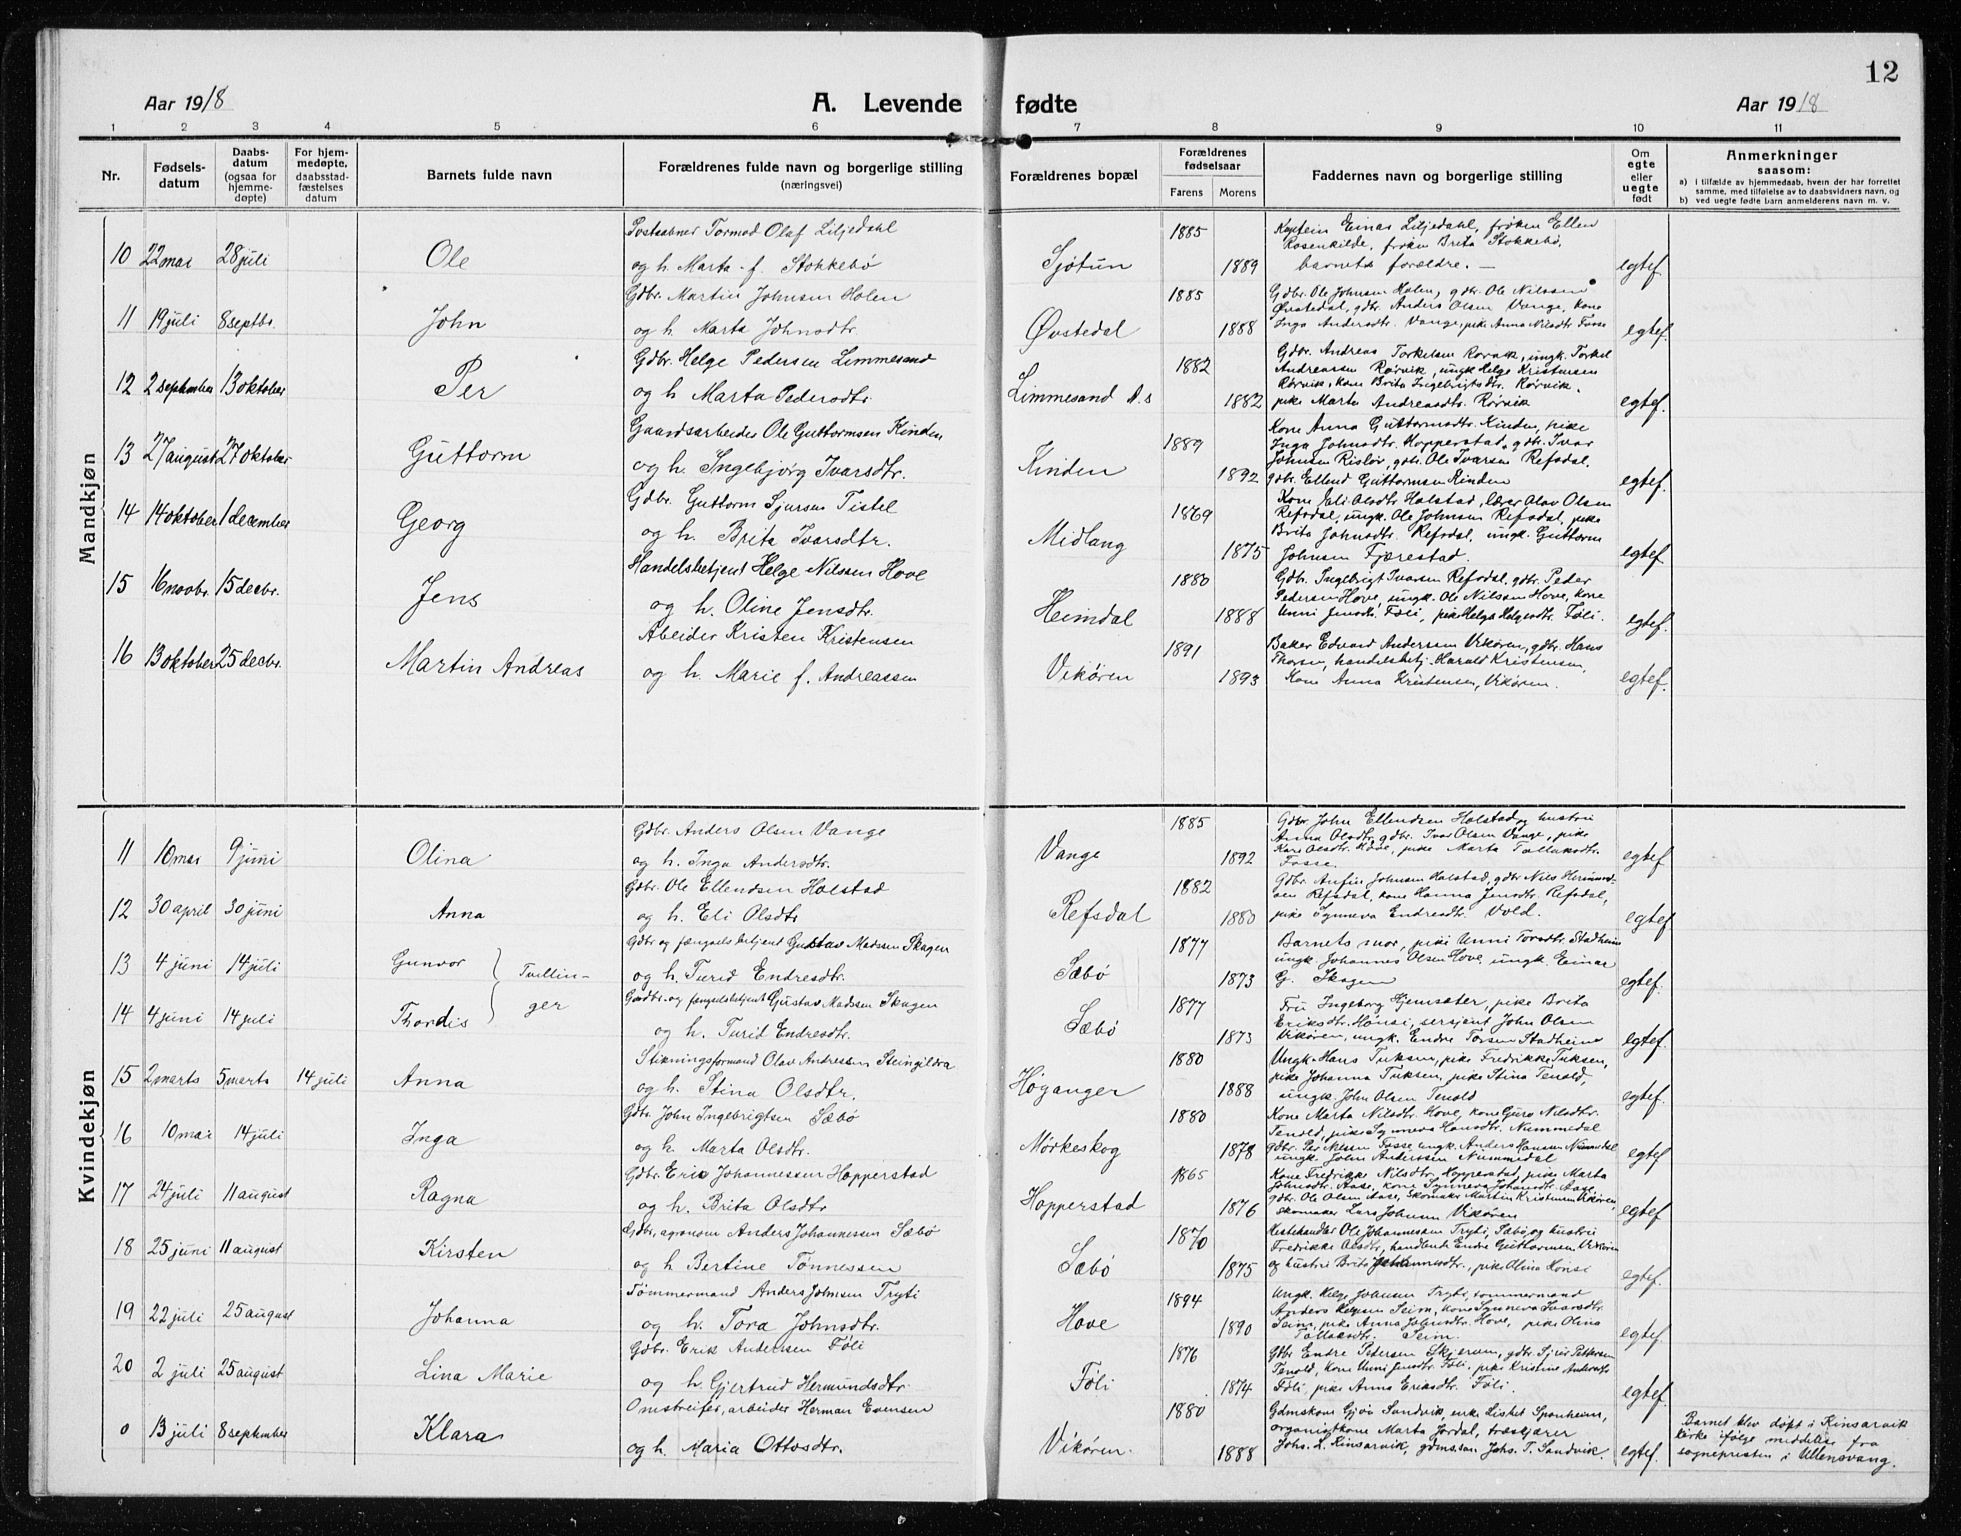 12
Aar 1918
A. Levende fødte
Aar 1918
1 2 3 4 5 6 7 8 9 10 11
Nr.
Fødsels-
datum
Daabs-
datum
(ogsaa for
hjemme-
døpte)
For hjem-
medøpte,
daabsstad-
fæstelses
datum
Barnets fulde navn
Forældrenes fulde navn og borgerlige stilling
(næringsvei)
Forældrenes bopæl
Forældrenes
fødselsaar
Farens Morens
Faddernes navn og borgerlige stilling
Om
egte
eller
uegte
født
Anmerkninger
saasom:
a) i tilfælde av hjemmedaab, hvem der har forrettet
samme, med tilføielse av to daabsvidners navn, og
b) ved uegte fødte barn anmelderens navn m. v.
Mandkjøn
10 22 mai 28 juli Ole
Postaabner Tormod Olaf Liljedahl
og h. Marta f. Stokkebø
Sjøtun 1885 1889
Kaptein Einar Liljedahl, frøken Ellen
Rosenkilde, frøken Brita Stokkebø,
barnets forældre. —
egtef.
11 19 juli 8 septbr. John
Gdbr. Martin Johnsen Holen
og h. Marta Johnsdtr.
Øvstedal 1885 1888
Gdbr. Ole Johnsen Holen, gdbr. Ole Nilssen
Øvstedal, gdbr. Anders Olsen Vange, kone
Inga Andersdtr. Vange, pike Anna Nilsdtr. Fosse
egtef.
12 2 september 13 oktober Per
Gdbr. Helge Pedersen Limmesand
og h. Marta Pedersdtr.
Limmesand 1882 1882
Gdbr. Andreas Torkelsen Rørvik, ungk. Torkel
Andreassen Rørvik, ungk. Helge Kristensen
Rørvik, kone Brita Ingebrigtsdtr. Rørvik,
pike Marta Andreasdtr. Rørvik
egtef.
13 27 august 27 oktober Guttorm
Gaardsarbeider Ole Guttormsen Kinden
og h. Ingebjørg Ivarsdtr.
Kinden 1889 1892
Kone Anna Guttormsdtr. Kinden, pike
Inga Johnsdtr. Hopperstad, gdbr. Ivar
Johnsen Risløv, gdbr. Ole Ivarsen Refsdal,
gdbr. Ellend Guttormsen Kinden
egtef.
14 14 oktober 1 december Georg
Gdbr. Guttorm Sjursen Tistel
og h. Brita Ivarsdtr.
Midlang 1869 1875
Kone Eli Olsdtr. Holstad, lærer Olav Olsen
Refsdal, ungk. Ole Johnsen Refsdal, pike
Brita Johnsdtr. Refsdal, ungk. Guttorm
Johnsen Fjærestad
egtef.
15 16 novbr. 15 decbr. Jens
Handelsbetjent Helge Nilssen Hove
og h. Oline Jensdtr.
Heimdal 1880 1888
Gdbr. Ingebrigt Ivarsen Refsdal, gdbr. Peder
Pedersen Hove, ungk. Ole Nilsen Hove, kone
Unni Jensdtr. Føli, pike Helga Helgesdtr. Føli.
egtef.
16 13 oktober 25 decbr. Martin Andreas
Abeider Kristen Kristensen
og h. Marie f. Andreassen
Vikøren 1891 1893
Baker Edvard Andersen Vikøren, gdbr. Hans
Thorsen, handelsbetj. Harald Kristensen,
Kone Anna Kristensen, Vikøren.
egtef.
Kvindekjøn
11 10 mai 9 juni Olina
Gdbr. Anders Olsen Vange
og h. Inga Andersdtr.
Vange 1885 1892
Gdbr John Ellendsen Holstad og hustru
Anna Olsdtr, gdbr. Ivar Olsen Vange, pike
Kari Olsdtr. Hove, pike Marta Tollaksdtr.
Fosse.
egtef.
12 30 april 30 juni Anna
Gdbr. Ole Ellendsen Holstad
og h. Eli Olsdtr
Refsdal 1882 1880
Gdbr. Anfin Johnsen Holstad, gdbr Nils Hermund-
sen Refsdal, kone Hanna Jensdtr. Refsdal,
pike Synneva Endresdtr. Vold.
egtef.
13 4 juni 14 juli Gunvor } Tvillin-
Gdbr og fængselsbetjent Gustav Madssen Skagen
og h. Turid Endresdtr.
Sæbø 1877 1873
Barnets mor, pike Unni Torsdtr. Stadheim
ungk. Johannes Olsen Hove, ungk. Einar
G. Skagen
egtef.
14 4 juni 14 juli Thordis } ger
Gardbr. og fængselsbetjent Gustav Madssen Skagen
og h. Turid Endresdtr.
Sæbø 1877 1873
Fru Ingeborg Hjemsæter, pike Brita
Eriksdtr. Hønsi, sersjent John Olsen
Vikøren, ungk. Endre Torsen Stadheim
egtef.
15 2 marts 5 marts 14 juli Anna
Stikningsformand Olav Andressen Steingildra
og h. Stina Olsdtr.
Høganger 1880 1888
Ungk. Hans Tuksen, pike Fredrikke Tuksen,
pike Johanna Tuksen, pike Stina Tenold,
ungk. John Olsen Tenold
egtef.
16 10 mai 14 juli Inga
Gdbr. John Ingebrigtsen Sæbø
og h. Marta Olsdtr.
Mørkeskog 1880 1878
Kone Marta Nilsdtr. Hove, kone Guro Nilsdtr.
Tenold, pike Synneva Hansdtr. Nummedal
gdbr. Per Nilsen Fosse, ungk. Anders Hansen Nummedal
ungk. John Anderssen Nummedal
egtef.
17 24 juli 11 august Ragna
Gdbr. Erik Johannessen Hopperstad
og h. Brita Olsdtr
Hopperstad 1865 1876
Kone Fredrikke Nilsdtr. Hopperstad, pike Marta
Johnsdtr. Aase, kone Synneva Johansdtr. Aase,
gdbr. Ole Olsen Aase, skomaker Martin Kristensen Vikøren,
skomaker Lars Johnsen Vikøren
egtef.
18 25 juni 11 august Kirsten
Gdbr, agronom Anders Johannessen Sæbø
og h Bertine Tønnessen
Sæbø 1870 1875
Hestehandler Ole Johannessen Tryti, Sæbø, og hustru
Fredrikke Olsdtr., handlende Endre Guttormsen Vikøren
og hustru Brita Johannesdtr., pike Olina Hønsi
egtef.
19 22 juli 25 august Johanna
Tømmermand Anders Johnsen Tryti
og h. Tora Johnsdtr.
Hove 1894 1890
Ungk. Helge Johnsen Tryti, tømmermand
Anders Helgesen Seim, kone Synneva Ivarsdtr.
Seim, pike Anna Johnsdtr. Hove, pike Olina
Tollaksdtr. Seim.
egtef.
20 2 juli 25 august Lina Marie
Gdbr. Erik Anderssen Føli
og h. Gjertrud Hermundsdtr.
Føli 1876 1874
Gdbr Endre Pedersen Skjerven, gdbr. Sjur Pettersen
Tenold, kone Unni Jensdtr. Føli, pike Kristine Andersdtr
Føli, pike Anna Eriksdtr. Føli.
egtef.
0 13 juli 8 september Klara
Omstreifer, arbeider Herman Evensen
og h. Maria Ottosdtr.
Vikøren. 1880 1888
Gdmskone Gjøa Sandvik, enke Lisbet Sponheim,
organistkone Marta Jordal, træskjærer
Johs. L. Kinsarvik, gdmssøn Johs. T. Sandvik.
egtef.
Barnet blev døpt i Kinsarvik
kirke ifølge meddelelse fra
sognepresten i Ullensvang.